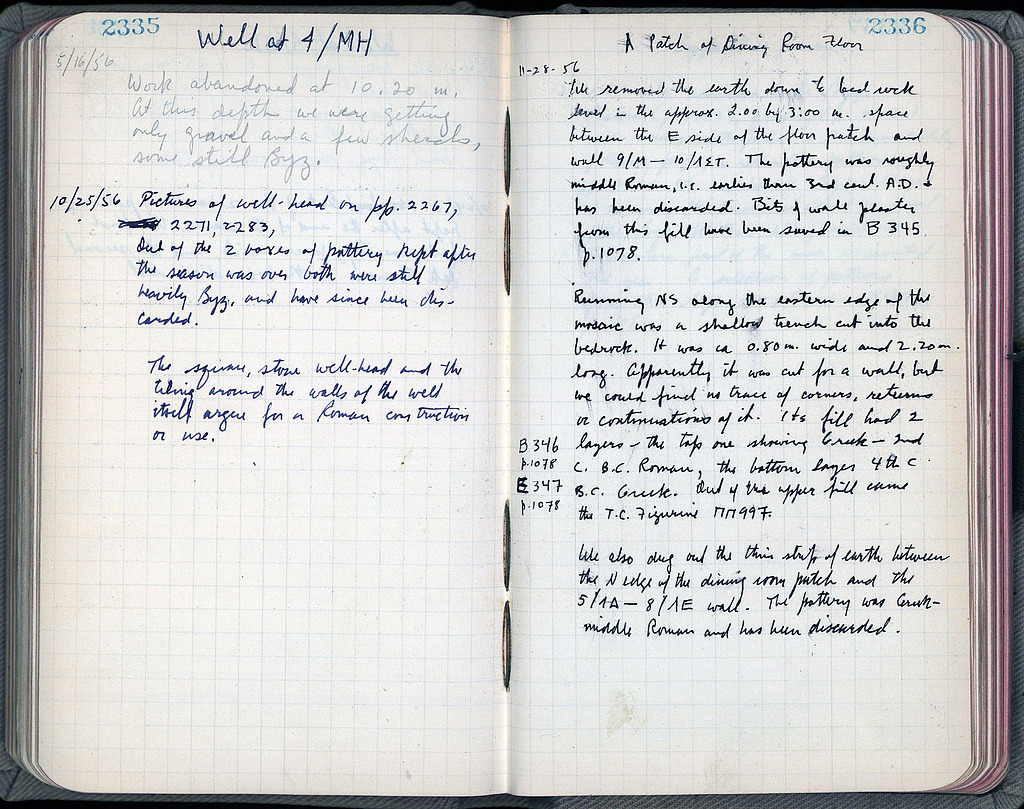 2335
Well at 4/MH
5/16/56
Work abandoned at 10.20 m.
At this depth we were getting
only gravel and a few sherds,
some still Byz.
10/25/56 Pictures of well-head on pp. 2267,
2271, 2283,
Out of the 2 boxes of pottery kept after
the season was over both were still
heavily Byz, and have since been dis-
carded.
The square, stone well-head and the
tiling around the walls of the well
itself argue for a Roman construction
or use.
2336
A Patch of Dining Room Floor
11-28-56
We removed the earth down to bed rock
level in the approx. 2.00 by 3.00 m. space
between the E side of the floor patch and
wall 9/M — 10/ΛΣΤ. The pottery was roughly
middle Roman, i.e. earlier than 3rd cent. A.D. +
has been discarded. Bits of wall plaster
from this fill have been saved in B 345
p. 1078.
Running NS along the eastern edge of the
mosaic was a shallow trench cut into the
bedrock. It was ca 0.80 m. wide and 2.20 m.
long. Apparently it was cut for a wall, but
we could find no trace of corners, returns
or continuations of it. Its fill had 2
layers – the top one showing Greek – 2nd
C. B.C. Roman, the bottom layer 4th C
B.C. Greek. Out of the upper fill came
the T.C. Figurine MM997.
B 346
p.1078
B 347
p.1078
We also dug out the thin strip of earth between
the N edge of the dining room patch and the
5/ΛΔ — 8/ΛE wall. The pottery was Greek-
middle Roman and has been discarded.